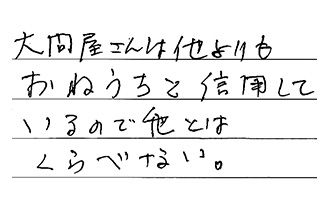 大問屋さんは他よりも
おねうちと信用して
いるので他とは
くらべない。